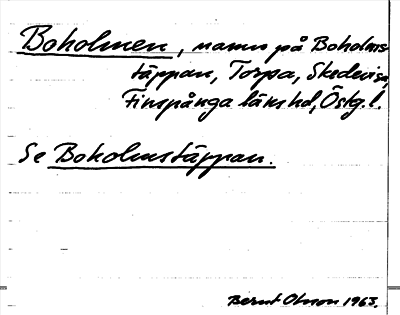 Boholmen, namn på Boholms-
täppan, Torpa, Skedevi sn,
Finspånga läns hd, Östg. l.
Se Boholmstäppan.
Bernt Olsson 1963.